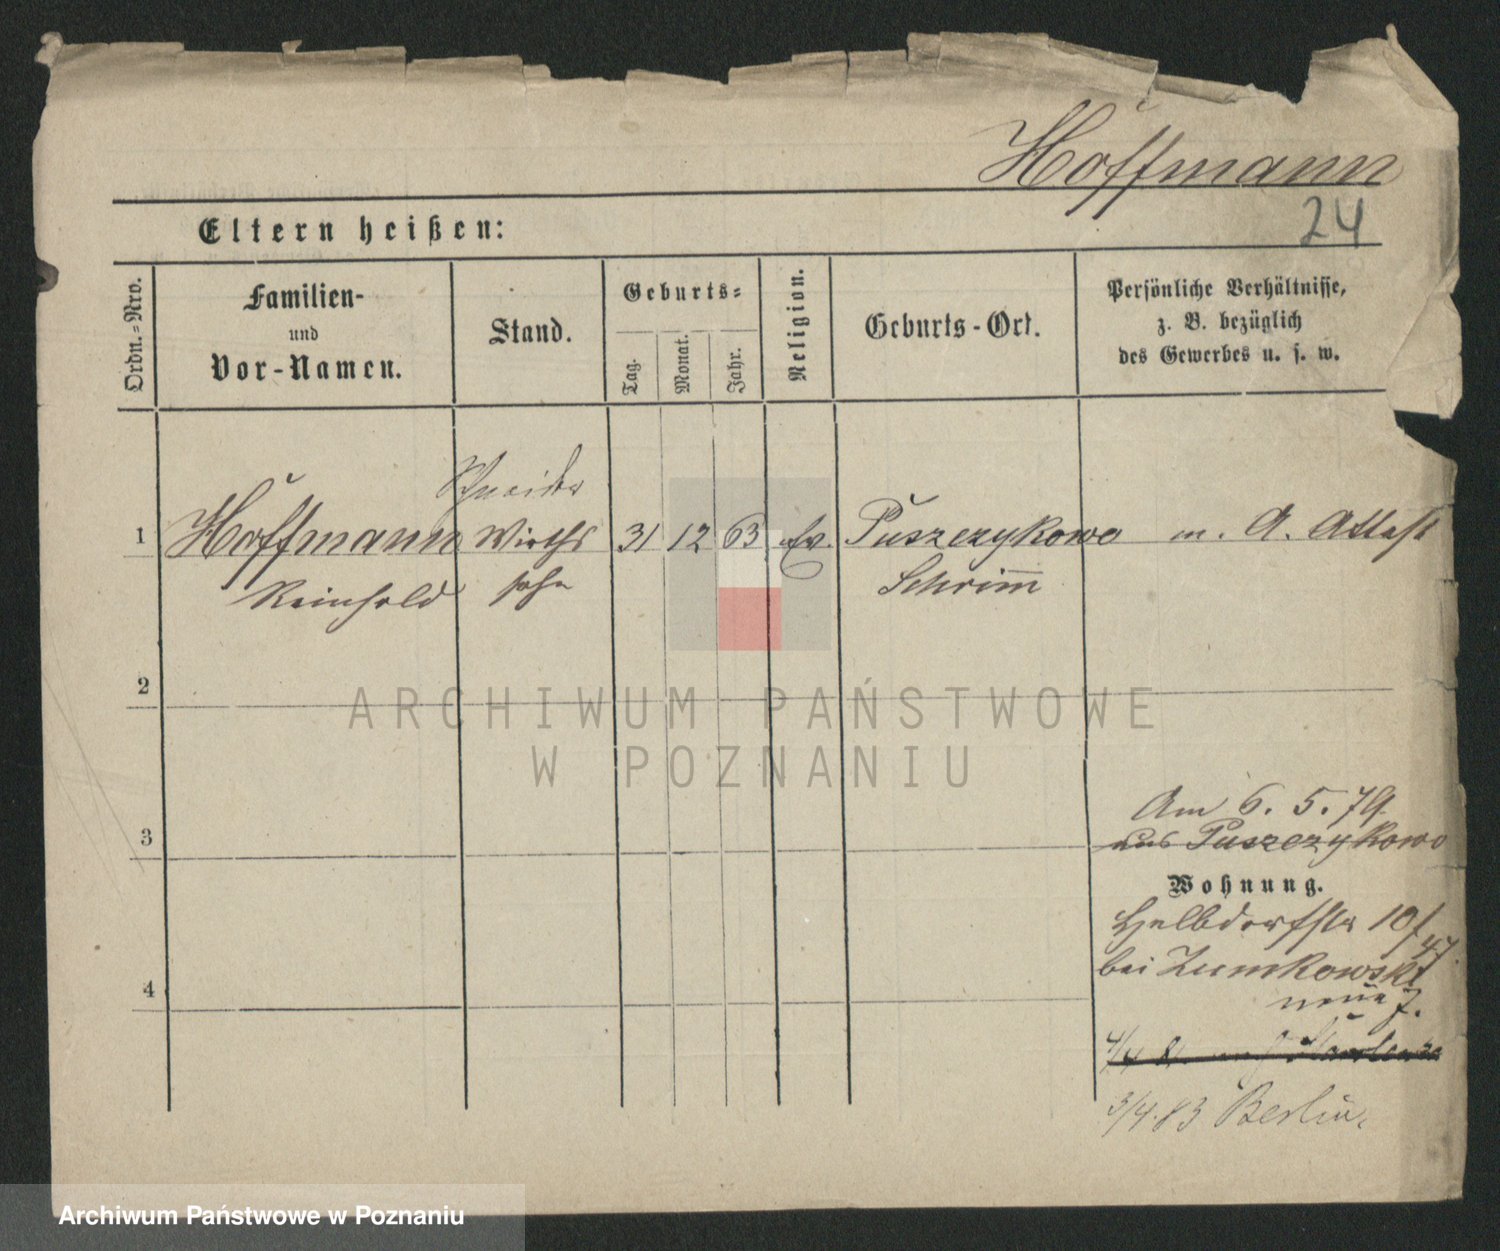 Hoffmann
24
Eltern heißen:
Ordn.-Nro.
Familien-
und
Vor-Namen.
Stand.
Geburts-
Tag.
Monat.
Jahr.
Religion.
Geburts-Ort.
Persönliche Verhältnisse,
z. B. bezüglich
des Gewerbes u. s. w.
Schneider
1 Hoffmann Wirths 31 12 63 Ev. Puszczykowo m. A. Attest
Reinhold sohn Schrimm
2
ARCHIWUM PAŃSTWOWE
W POZNANIU
Am 6. 5. 79.
3 aus Puszczykowo
Wohnung.
Halbdorfstr 10/
47.
bei Zumkowski
4
3/4.83 Berlin.
Archiwum Państwowe w Poznaniu